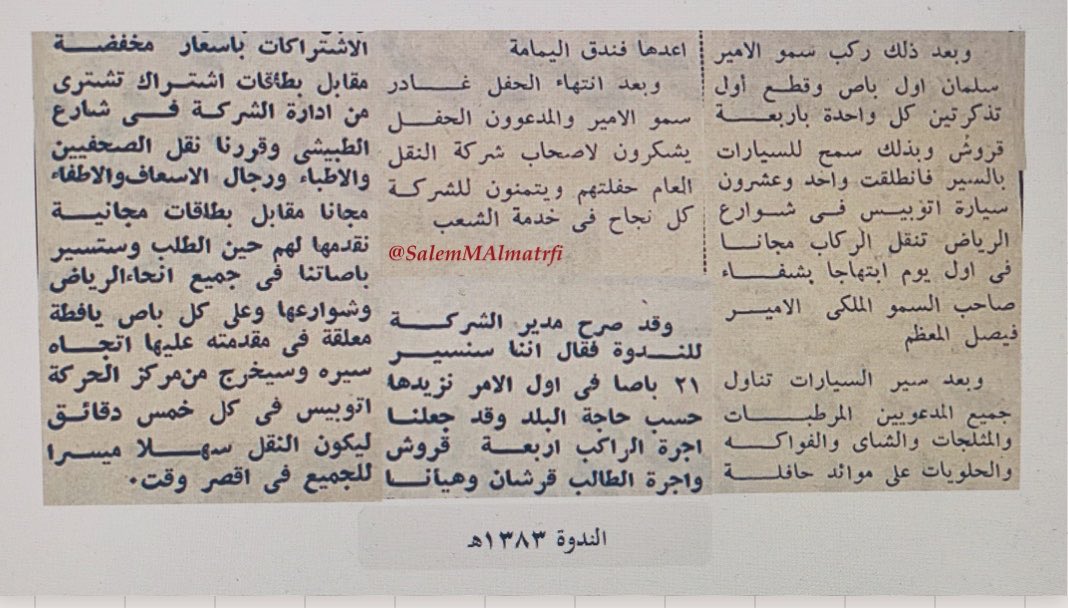 وبعد ذلك ركب سمو الامير
سلمان اول باص وقطع أول
تذكرتين كل واحدة باربعـــة
قروش وبذلك سمح للسيارات
بالسير فانطلقت واحد وعشرون
سيارة اتوبيس فــى شــوارع
الرياض تنقل الركاب مجانــا
فى اول يوم ابتهاجا بشفــاء
صاحب السمو الملكى الاميــر
فيصل المعظم
وبعد سير السيارات تناول
جميع المدعويين المرطبــات
والمثلجات والشاى والفواكــه
والحلويات على موائد حافلــة
اعدها فندق اليمامة
وبعد انتهاء الحفل غــادر
سمو الامير والمدعوون الحفــل
يشكرون لاصحاب شركة النقل
العام حفلتهم ويتمنون للشركة
كل نجاح فى خدمة الشعب
@SalemMAlmatrfi
وقد صرح مدير الشركــة
للنــدوة فقال اننا سنسيــر
٢١ باصا فى اول الامر نزيدها
حسب حاجة البلد وقد جعلنــا
اجرة الراكب اربعــة قروش
واجرة الطالب قرشان وهيأنــا
الاشتراكات باسعار مخفضــة
مقابل بطاقات اشتراك تشترى
من ادارة الشركة فــى شارع
الطبيشى وقررنا نقل الصحفيين
والاطباء ورجال الاسعاف والاطفاء
مجانا مقابل بطاقات مجانيــة
نقدمها لهم حين الطلب وستسير
باصاتنا فى جميع انحاء الرياض
وشوارعها وعلى كل باص يافطة
معلقة فى مقدمته عليها اتجــاه
سيره وسيخرج من مركز الحركة
اتوبيس فى كل خمس دقائــق
ليكون النقل سهــلا ميسرا
للجميع فى اقصر وقت.
الندوة ١٣٨٣هـ